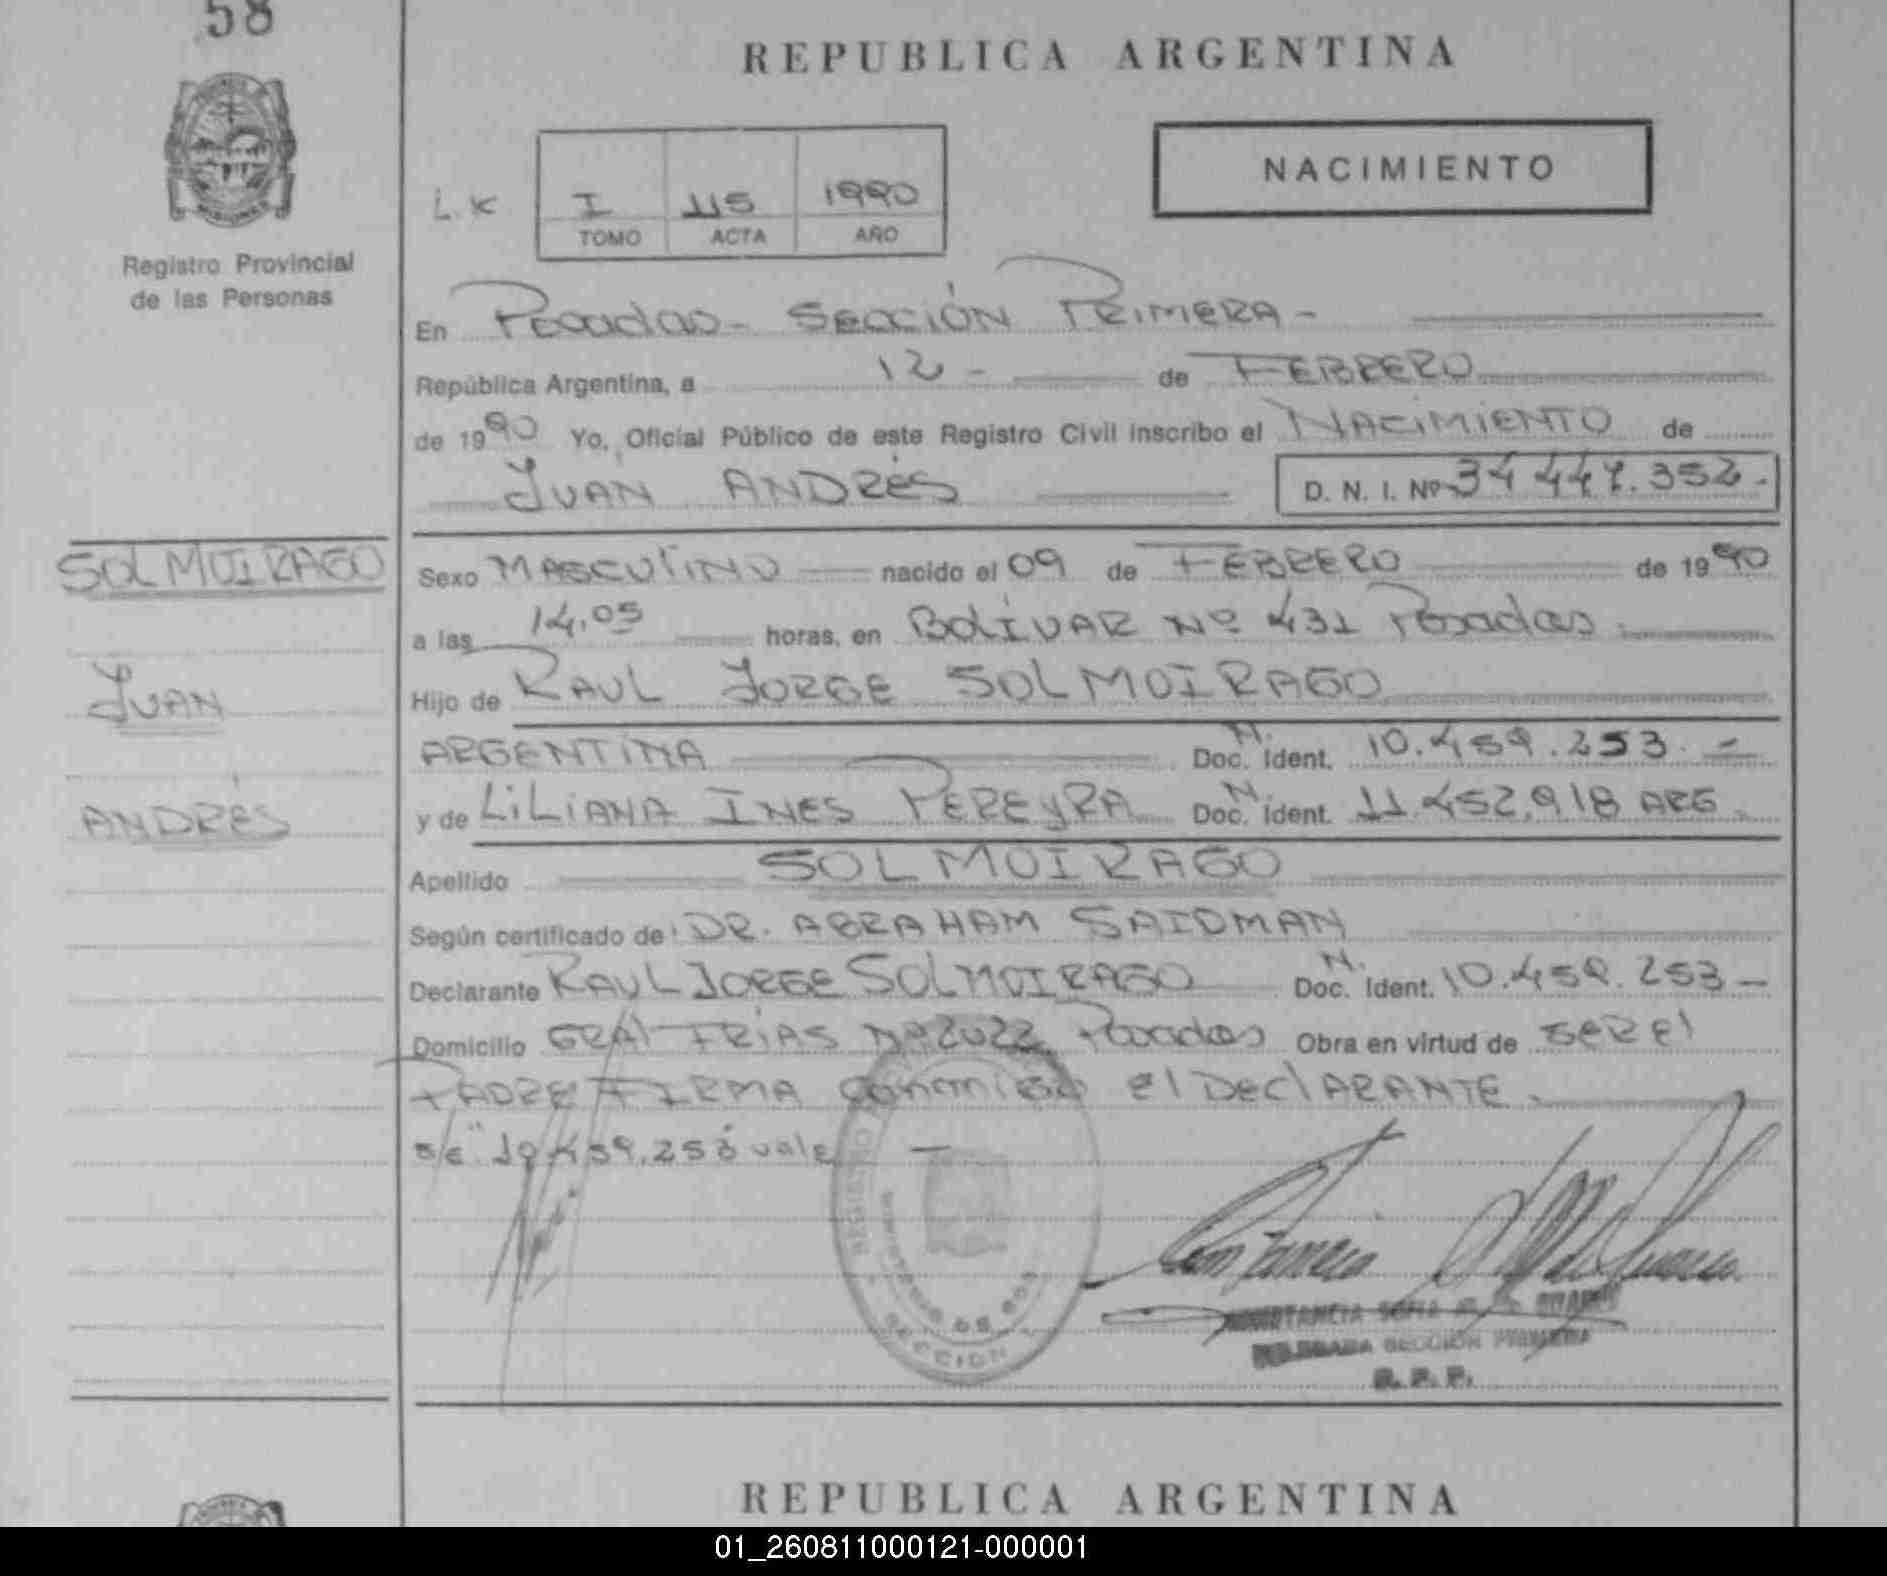 58
REPUBLICA ARGENTINA
NACIMIENTO
L. K I 115 1990
TOMO ACTA AÑO
Registro Provincial
de las Personas
En Posadas - SECCIÓN PRIMERA -
República Argentina, a 12 - de FEBRERO
de 1990 Yo, Oficial Público de este Registro Civil inscribo el NACIMIENTO de
JUAN ANDRÉS D. N. I. Nº 34 447.352.-
SOLMOIRAGO
JUAN
ANDRÉS
Sexo MASCULINO nacido el 09 de FEBRERO de 1990
a las 14,05 horas, en BOLÍVAR Nº 431 Posadas.
Hijo de RAUL JORGE SOLMOIRAGO
ARGENTINA Doc. N. Ident. 10.459.253. -
y de LILIANA INES PEREYRA Doc. N. Ident. 11.452,918 ARG.
Apellido SOLMOIRAGO
Según certificado de DR. ABRAHAM SAIDMAN
Declarante RAUL JORGE SOLMOIRAGO Doc. N. Ident. 10.459.253 -
Domicilio GRAL FRIAS Nº 2022 Posadas Obra en virtud de SER El
PADRE FIRMA conmigo el DEClARANTE.
s/e " 10 459.253 vale -
REGISTRO
SECCION
CONSTANCIA SOFIA
DELEGADA SECCION PRIMERA
R. P. P.
REPUBLICA ARGENTINA
01_260811000121-000001